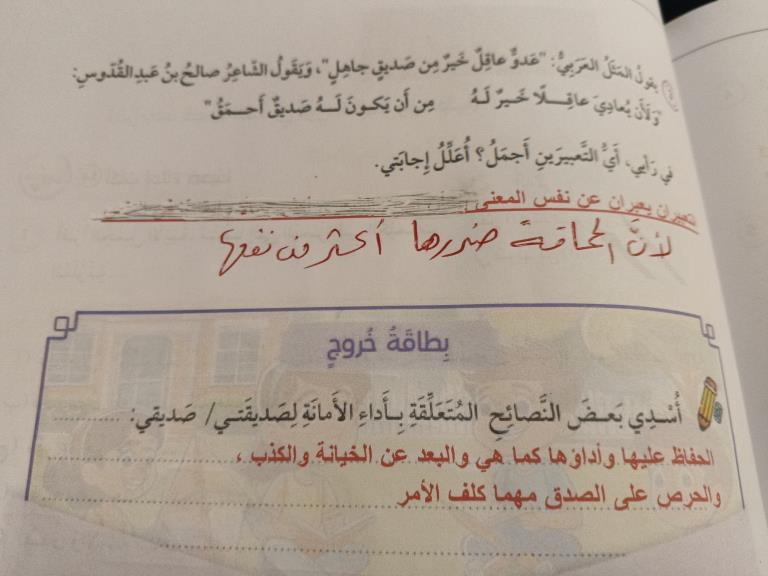 يقولُ المَثَلُ العَرَبِيُّ: "عَدوٌّ عاقِلٌ خَيرٌ مِن صَديقٍ جاهِلٍ"، وَيَقولُ الشّاعِرُ صالحُ بنُ عَبدِ القُدّوسِ:
"وَلَأَن يُعادِيَ عاقِـلًا خَـيرٌ لَـهُ مِن أَن يَكـونَ لَـهُ صَديقٌ أَحـمَقُ"
في رَأيي، أَيُّ التَّعبيرَينِ أَجمَلُ؟ أُعَلِّلُ إِجابَتي.
التعبيران يعبران عن نفس المعنى
لأنَّ الحماقة ضررها أكثر من نفعها
بِطاقَةُ خُروجٍ
أُسْدِي بَعـضَ النَّصائِحِ المُتَعَلِّقَةِ بِـأَداءِ الأَمانَةِ لِصَديقَتـي/ صَديقي:
الحفاظ عليها وأداؤها كما هي والبعد عن الخيانة والكذب ،
والحرص على الصدق مهما كلف الأمر